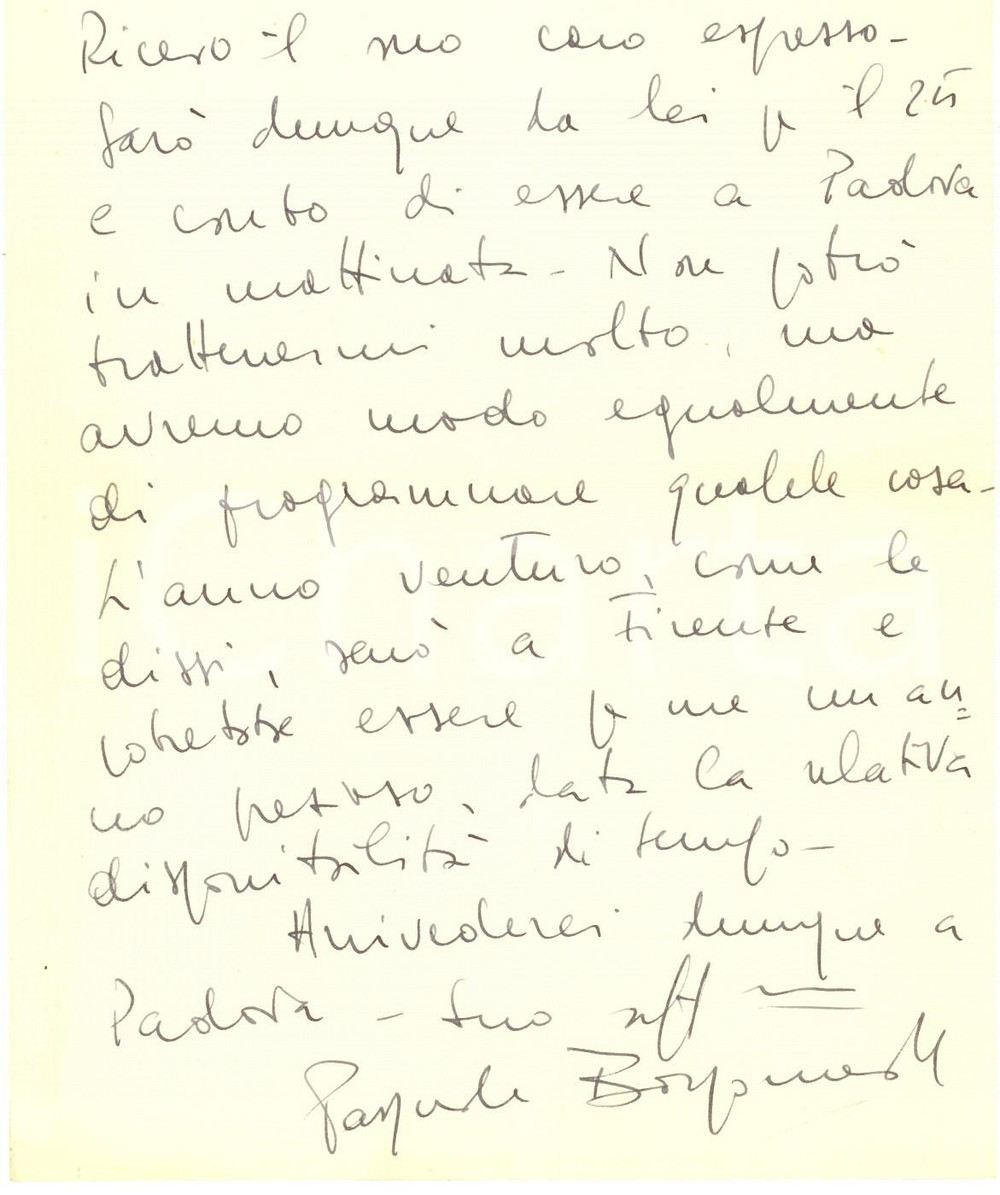 Ricevo il suo caro espresso -
Sarò dunque da lei p il 25
e conto di essere a Padova
in mattinata - Non potrò
trattenermi molto, ma
avremo modo egualmente
di programmare qualche cosa -
L'anno venturo, come le
dissi, sarò a Firenze e
potrebbe essere p me un an
no prezioso, data la relativa
disponibilità di tempo -
Arrivederci dunque a
Padova - Suo aff
Pasquale
iCharta